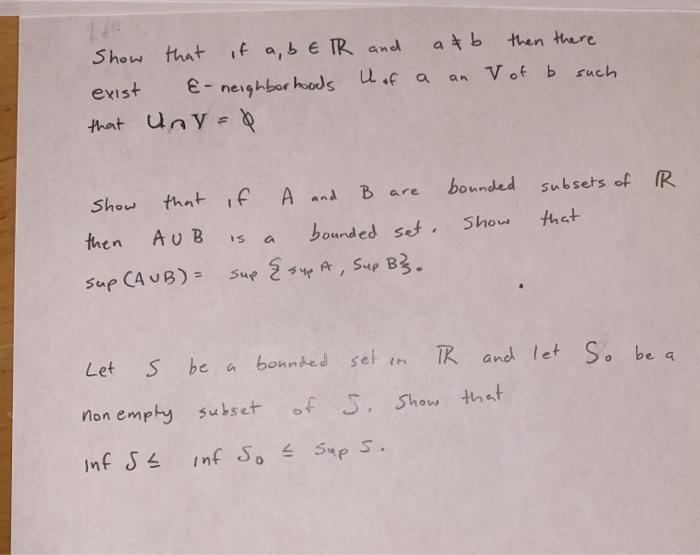 Show that if a, b ∈ ℝ and a ≠ b then there
exist ε-neighborhoods U of a an V of b such
that U∩V = ∅
Show that if A and B are bounded subsets of ℝ
then A∪B is a bounded set. Show that
sup(A∪B) = sup {sup A, Sup B}.
Let S be a bounded set in ℝ and let S₀ be a
nonempty subset of S. Show that
Inf S ≤ inf S₀ ≤ Sup S.